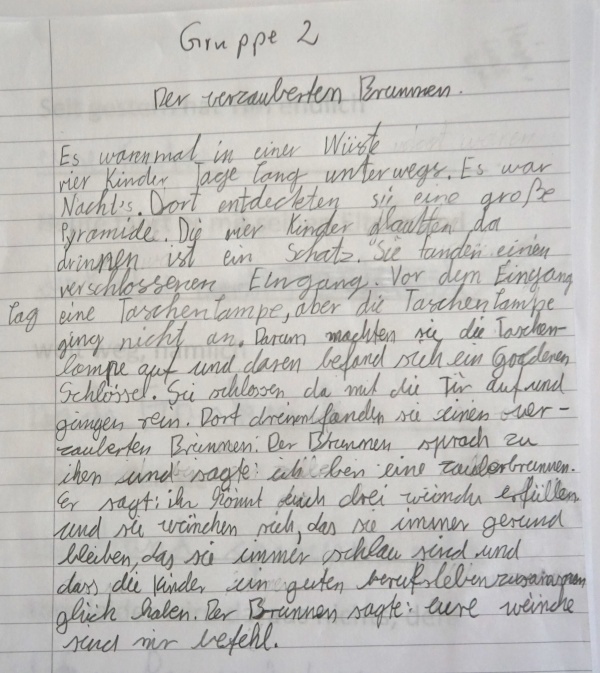 Gruppe 2
Der verzauberten Brunnen.
Es waren mal in einer Wüste
vier Kinder Tage lang unterwegs. Es war
Nacht's. Dort entdeckten sie eine große
Pyramide. Die vier Kinder glaubten da
drinnen ist ein Schatz. Sie fanden einen
verschlossenen Eingang. Vor dem Eingang
lag eine Taschenlampe, aber die Taschenlampe
ging nicht an. Darum machten sie die Taschen-
lampe auf und daren befand sich ein Goldenen
Schlössel. Sie schlossen da mit die Tür auf und
gingen rein. Dort drinnen fanden sie einen ver-
zauberten Brunnen. Der Brunnen sprach zu
ihen und sagte: ich ben eine zauberbrunnen.
Er sagt: ihr könnt euch drei wünche erfüllen
und sie wünchen sich, das sie immer gesund
bleiben, das sie immer schlau sind und
dass die Kinder ein guten berufsleben
glück haben. Der Brunnen sagte: eure weinche
send mir befehl.